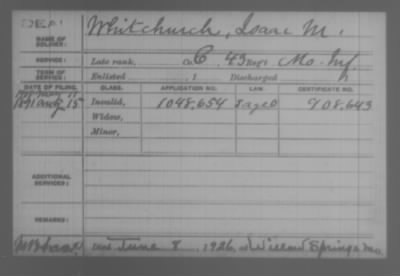 DEAD
NAME OF SOLDIER: Whitchurch, Isaac M.
SERVICE: Late rank, Co. C, 43 Reg't Mo. Inf.
TERM OF SERVICE: Enlisted , 1 Discharged , 1
DATE OF FILING. CLASS. APPLICATION NO. LAW. CERTIFICATE NO.
1891 Aug. 15 Invalid, 1048,654 908,643
Widow,
Minor,
ADDITIONAL SERVICES:
REMARKS:
died June 8, 1926, at Willow Springs Mo.